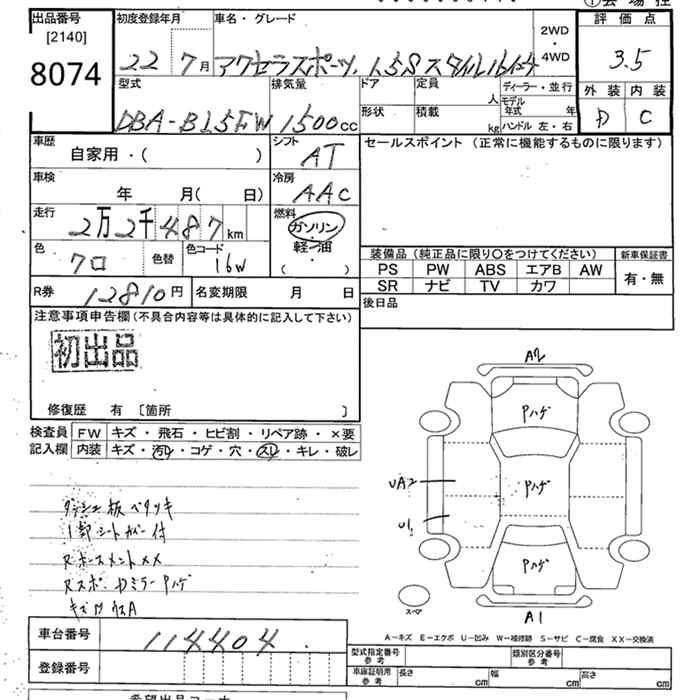 ①会場控
出品番号
[2140]
8074
初度登録年月
22 7月
車名・グレード
アクセラスポーツ 1.5Sスタイル16インチ
2WD
・
4WD
評価点
3.5
外装 内装
D C
型式
DBA-BL5FW
排気量
1500cc
ドア
定員
人
ディーラー・並行
モデル年式 年
形状
積載
kg
ハンドル 左・右
車歴
自家用・( )
シフト
AT
車検
年 月( 日)
冷房
AAC
走行
2万2千487km
燃料
ガソリン
・
軽油
( )
色
クロ
色替
色コード
16W
R券
12810円
名変期限 月 日
セールスポイント (正常に機能するものに限ります)
装備品 (純正品に限り〇をつけてください)
新車保証書
PS PW ABS エアB AW
有・無
SR ナビ TV カワ
後日品
注意事項申告欄(不具合内容等は具体的に記入して下さい)
初出品
修復歴 有 [箇所 ]
検査員 FW キズ・飛石・ヒビ割・リペア跡・×要
記入欄 内装 キズ・汚レ・コゲ・穴・スレ・キレ・破レ
ダッシュ板ベタツキ
1部シートカバー付
Rスポ、DミラーPハゲ
A2
Pハゲ
Pハゲ
UA2
U1
Pハゲ
スペア
A1
A-キズ E-エクボ U-凹み W-補修跡 S-サビ C-腐食 XX-交換済
車台番号
114404
登録番号
型式指定番号
参考
類別区分番号
参考
車庫証明用
参考
長さ cm
幅 cm
高さ cm
希望出品コーナー